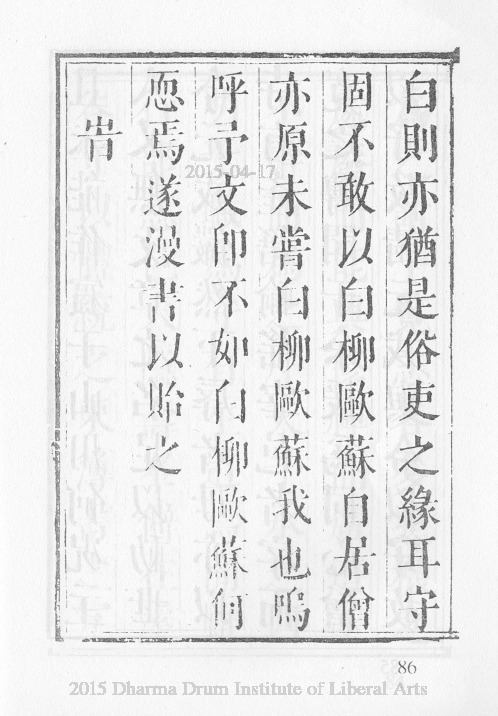 白則亦猶是俗吏之緣耳守
固不敢以白柳歐蘇自居僧
亦原未嘗白柳歐蘇我也嗚
呼予文卽不如白柳歐蘇何
恧焉遂漫書以貽之
2015-04-17
86
2015 Dharma Drum Institute of Liberal Arts